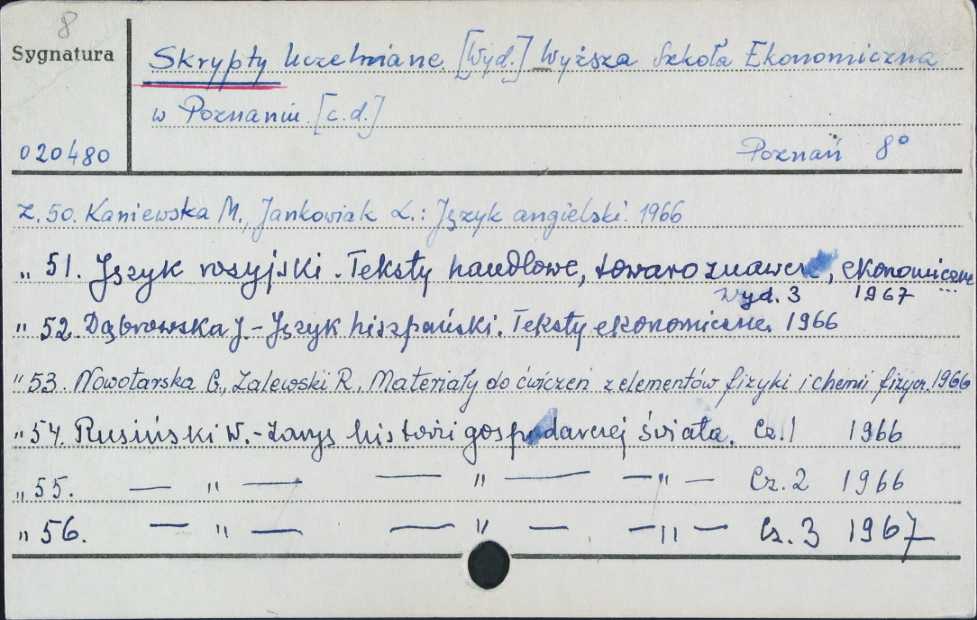 8
Sygnatura
Skrypty Uczelniane. [Wyd.] Wyższa Szkoła Ekonomiczna
w Poznaniu. [c.d.]
020480
Poznań 8°
Z. 50. Kaniewska M., Jankowiak L.: Język angielski. 1966
" 51. Język rosyjski. Teksty handlowe, towaroznawcze, ekonomiczne
Wyd. 3 1967
" 52. Dąbrowska J. - Język hiszpański. Teksty ekonomiczne. 1966
" 53. Nowotarska G., Zalewski R. Materiały do ćwiczeń z elementów fizyki i chemii fizycz. 1966
" 54. Rusiński W. - Zarys historii gospodarczej świata. Cz. 1 1966
" 55. — " — — " — — " — Cz. 2 1966
" 56. — " — — " — — " — Cz. 3 1967